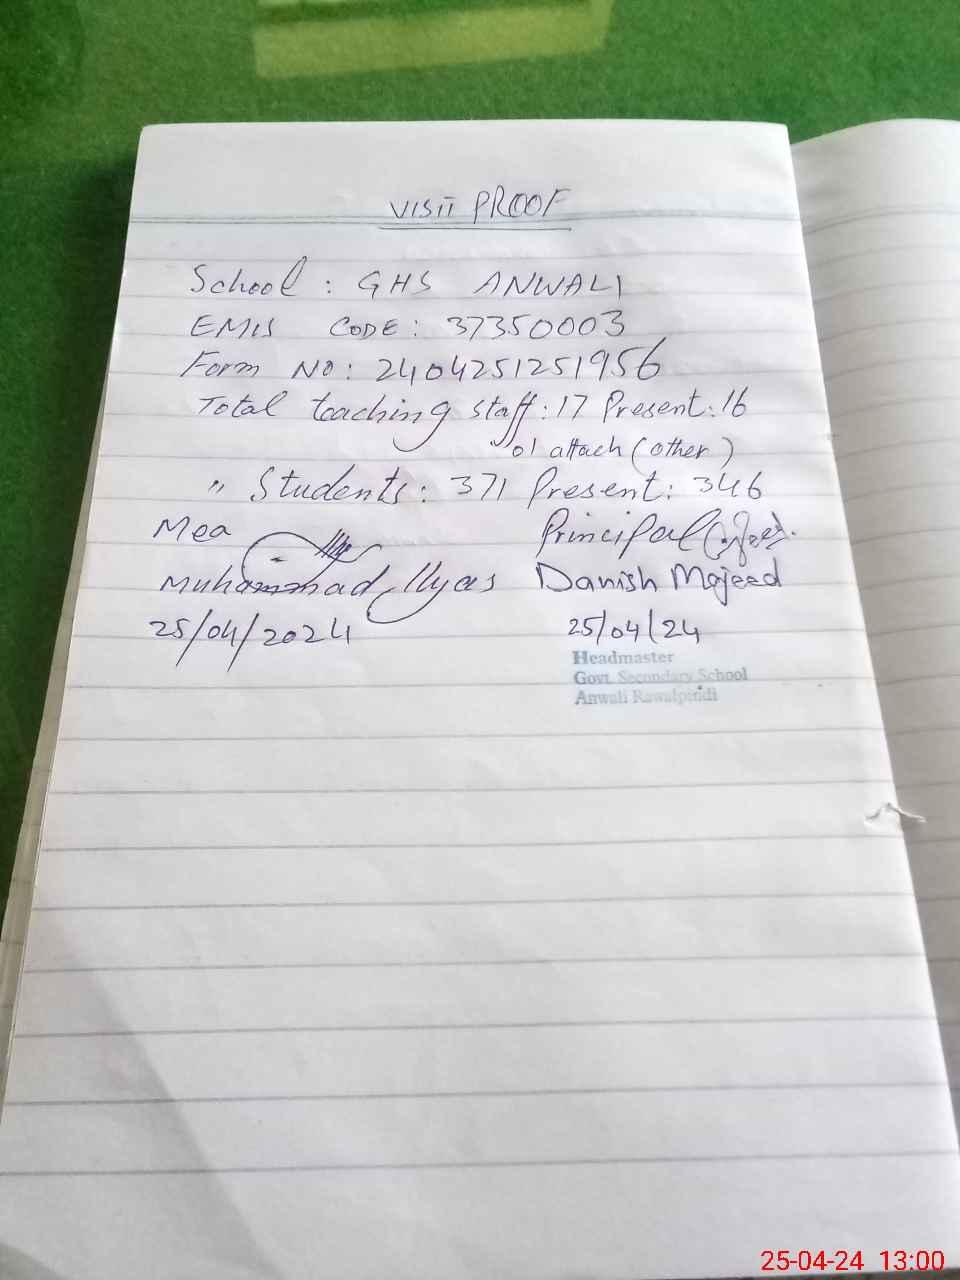 VISIT PROOF
School : GHS ANWALI
EMIS CODE : 37350003
Form NO : 2404251251956
Total teaching staff : 17 Present : 16
01 attach (other)
" Students : 371 Present : 346
Mea Principal
Muhammad Ilyas Danish Majeed
25/04/2024 25/04/24
Headmaster
Govt. Secondary School
Anwali Rawalpindi
25-04-24 13:00